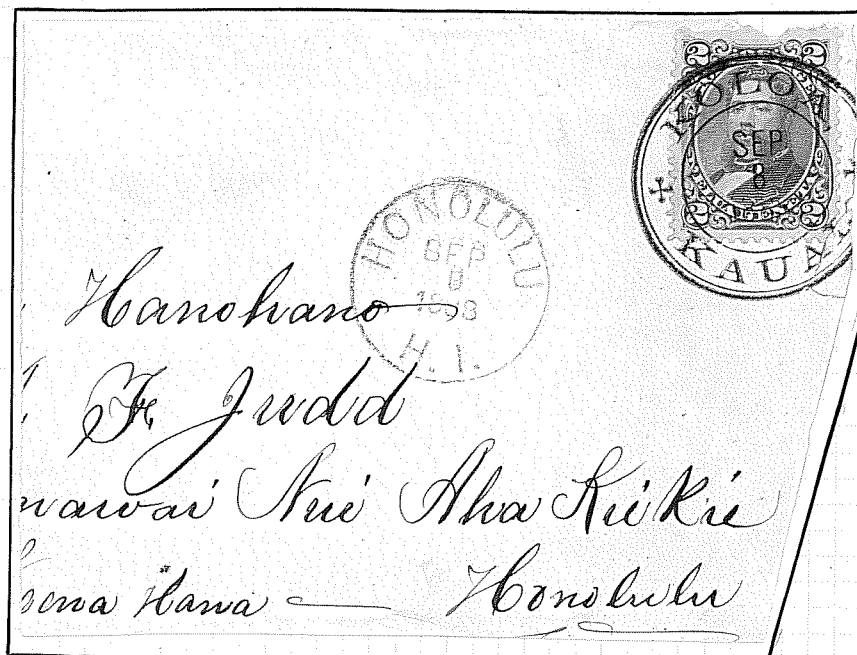 2 2
KOLOA
SEP
8
2 2
+ KAUAI
HONOLULU
SEP
H. I.
Hanohano
F. Judd
nawai Nui Aha Kiekie
Hana Honolulu